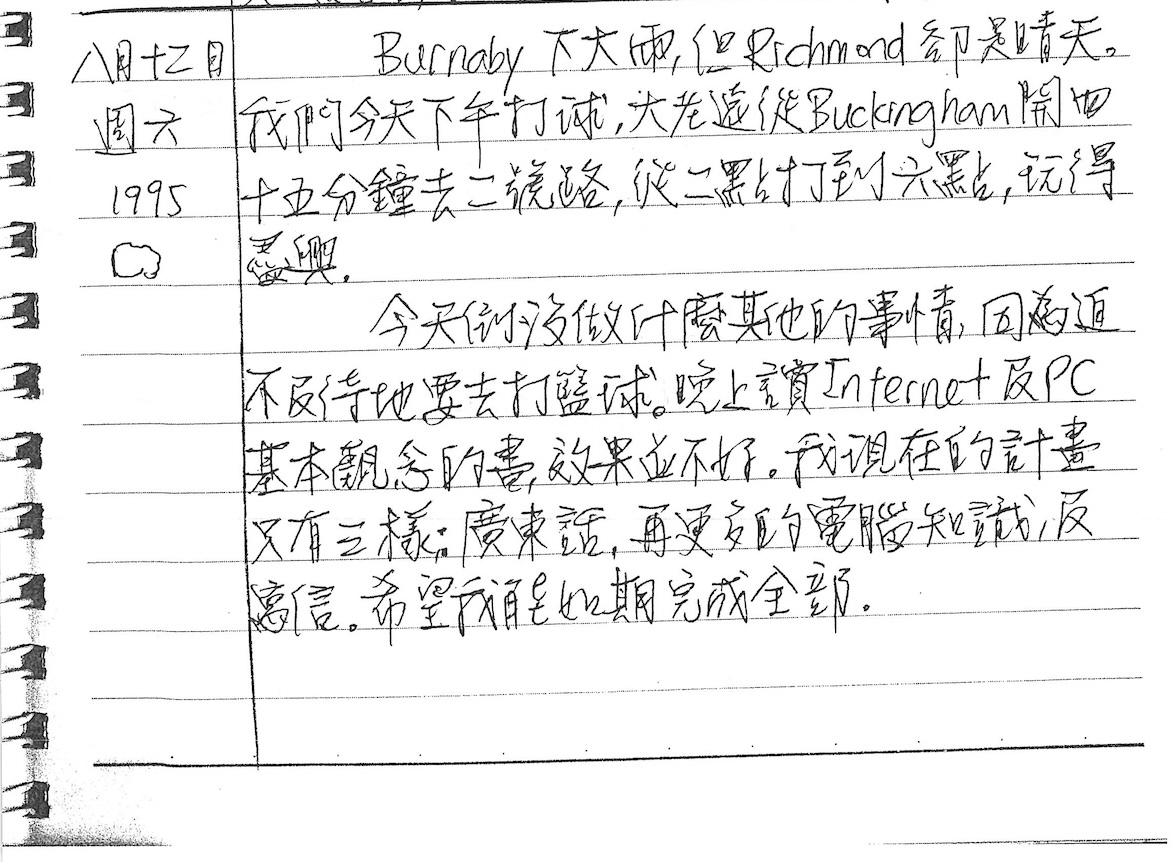 八月十二日
週六
1995
Burnaby 下大雨,但Richmond 卻是晴天。
我們今天下午打球,大老遠從Buckingham開四
十五分鐘去二號路,從二點打到六點,玩得
盡興.
今天倒沒做什麼其他的事情,因為迫
不及待地要去打籃球。晚上讀Internet及PC
基本觀念的書,效果並不好。我現在的計畫
只有三樣:廣東話,再更多的電腦知識,及
寫信。希望我能如期完成全部.